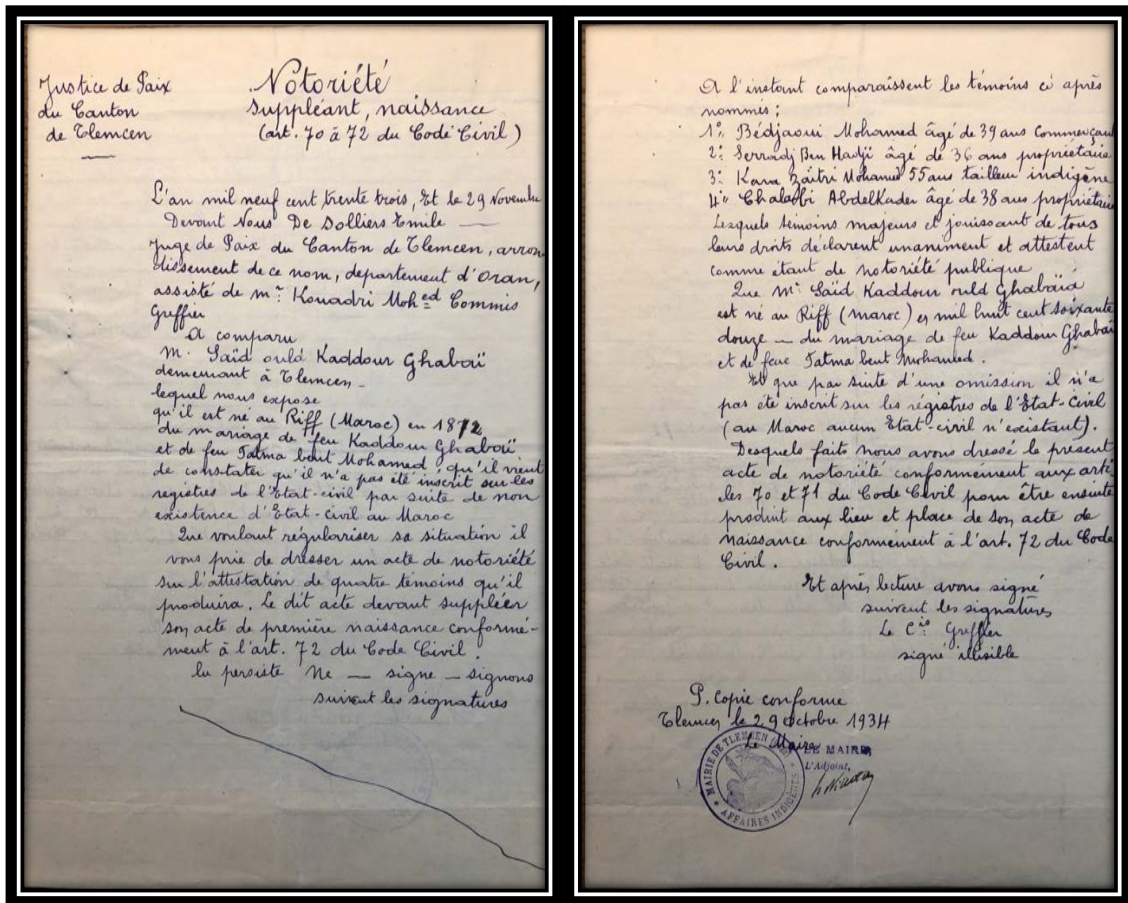 Justice de Paix
du Canton
de Tlemcen
Notoriété
suppléant, naissance
(art. 70 à 72 du Code Civil)
L'an mil neuf cent trente trois, Et le 29 Novembre
Devant Nous De Solliers Emile —
Juge de Paix du Canton de Tlemcen, arron-
dissement de ce nom, departement d'Oran,
assisté de mr. Kouadri Mohed Commis
Greffier
A comparu
M. Saïd ould Kaddour Ghabaï
demeurant à Tlemcen -
lequel nous expose
qu'il est né au Riff (Maroc) en 1872
du mariage de feu Kaddour Ghabaï
et de feu Fatma bent Mohamed, qu'il vient
de constater qu'il n'a pas été inscrit sur les
registres de l'Etat-civil par suite de non
existence d'Etat-civil au Maroc
Que voulant régulariser sa situation il
vous prie de dresser un acte de notoriété
sur l'attestation de quatre témoins qu'il
produira. Le dit acte devant suppléer
son acte de première naissance conformé-
ment à l'art. 72 du Code Civil.
lu persiste Ne — signe — signons
suivent les signatures
A l'instant comparaissent les témoins ci après
nommés;
1º: Bédjaoui Mohamed âgé de 39 ans Commerçant
2: Serradj Ben Hadji âgé de 36 ans propriétaire
3: Kara Zaïtri Mohamed 55 ans tailleur indigène
4º Chalabi AbdelKader âgé de 38 ans propriétaire
Lesquels témoins majeurs et jouissant de tous
leurs droits déclarent unaniment et attestent
comme étant de notoriété publique
Que Mr Saïd Kaddour ould Ghabaïd
est né au Riff (maroc) en mil huit cent soixante
douze — du mariage de feu Kaddour Ghabaï
et de feue Fatma bent Mohamed.
Et que par suite d'une omission il n'a
pas été inscrit sur les régistres de l'Etat-Civil
(au Maroc aucun Etat-civil n'existant).
Desquels faits nous avons dressé le présent
acte de notoriété conformément aux arti
les 70 et 71 du Code Civil pour être ensuite
produit aux lieu et place de son acte de
naissance conformement à l'art. 72 du Code
Civil.
Et après lecture avons signé
suivent les signatures
Le Cis: Greffier
signé illisible
P. Copie conforme
Tlemcen le 29 Octobre 1934
Le Maire
LE MAIRE
L'Adjoint,
MAIRIE DE TLEMCEN
AFFAIRES INDIGÈNES